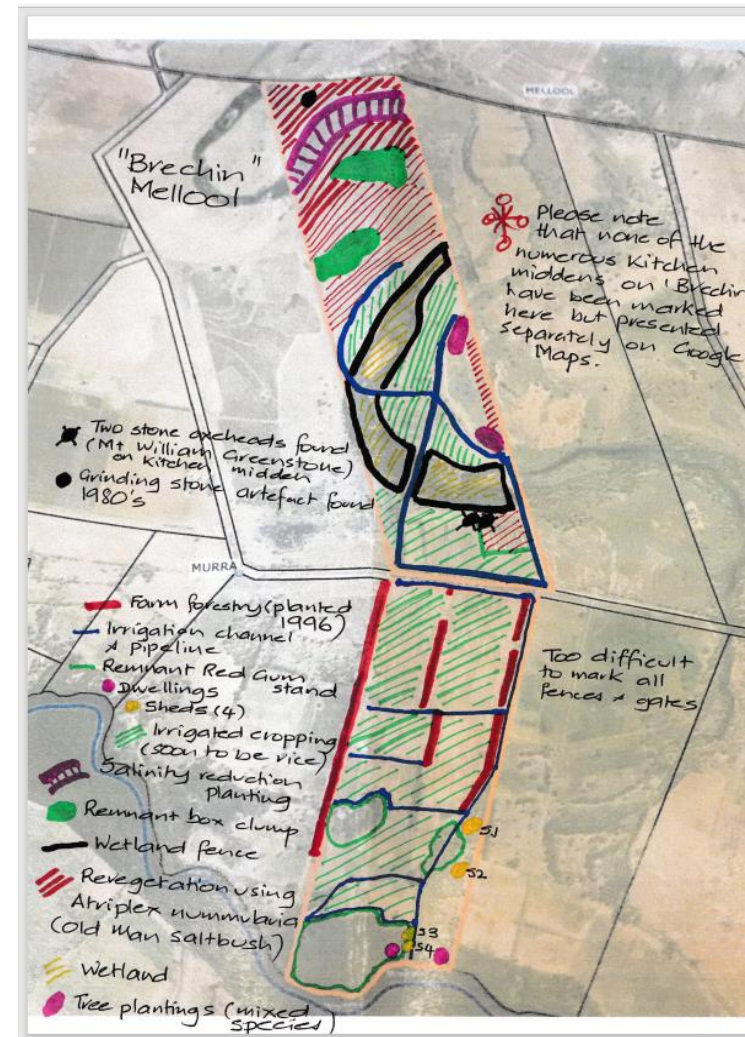 MELLOOL
"Brechin"
Mellool
Please note
that none of the
numerous Kitchen
middens on 'Brechin
have been marked
here but presented
separately on Google
Maps.
Two stone axeheads found
(Mt William Greenstone)
on Kitchen midden
Grinding stone artefact found
1980's
MURRA
Farm forestry (planted
1996)
Irrigation channel
& pipeline
Remnant Red Gum
stand
Dwellings
Sheds (4)
Irrigated cropping
(soon to be rice)
Salinity reduction
planting
Remnant box clump
Wetland fence
Revegetation using
Atriplex nummularia
(old man saltbush)
Wetland
Tree plantings (mixed
species)
Too difficult
to mark all
fences & gates
S1
S2
S3
S4